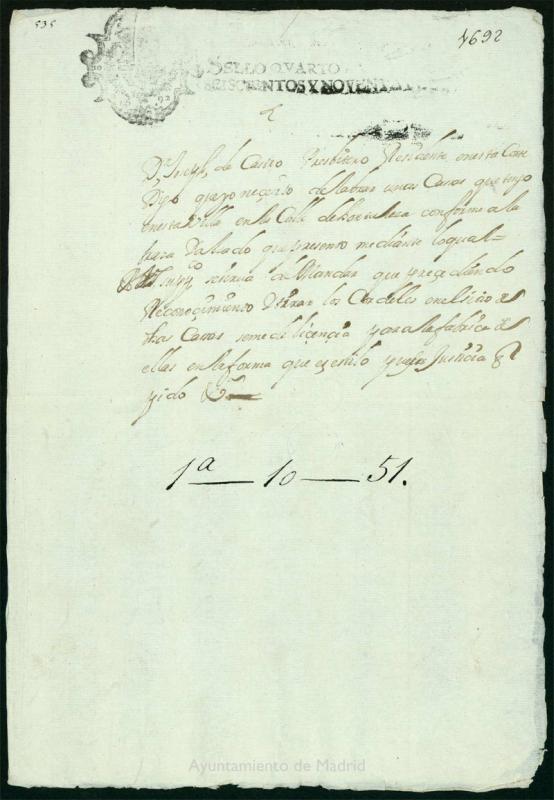 535
1692
SELLO QVARTO
SEISCIENTOS Y NOVENTA
Dn Joseph de Castro Presbitero Residente en esta Corte
Digo que yo neçesito de labrar unas Casas que tengo
en esta Villa en la Calle de hortaleza conforme a la
traza Da lado que presento mediante lo qual=
A V.S. suppco se sirva de Mandar que preçediendo
Reconoçimiento y tirar los Cordeles en el sitio de
dhas Casas se me de liçençia para la fabrica de
ellas en la forma que es estilo
pido
1a — 10 — 51.
Ayuntamiento de Madrid